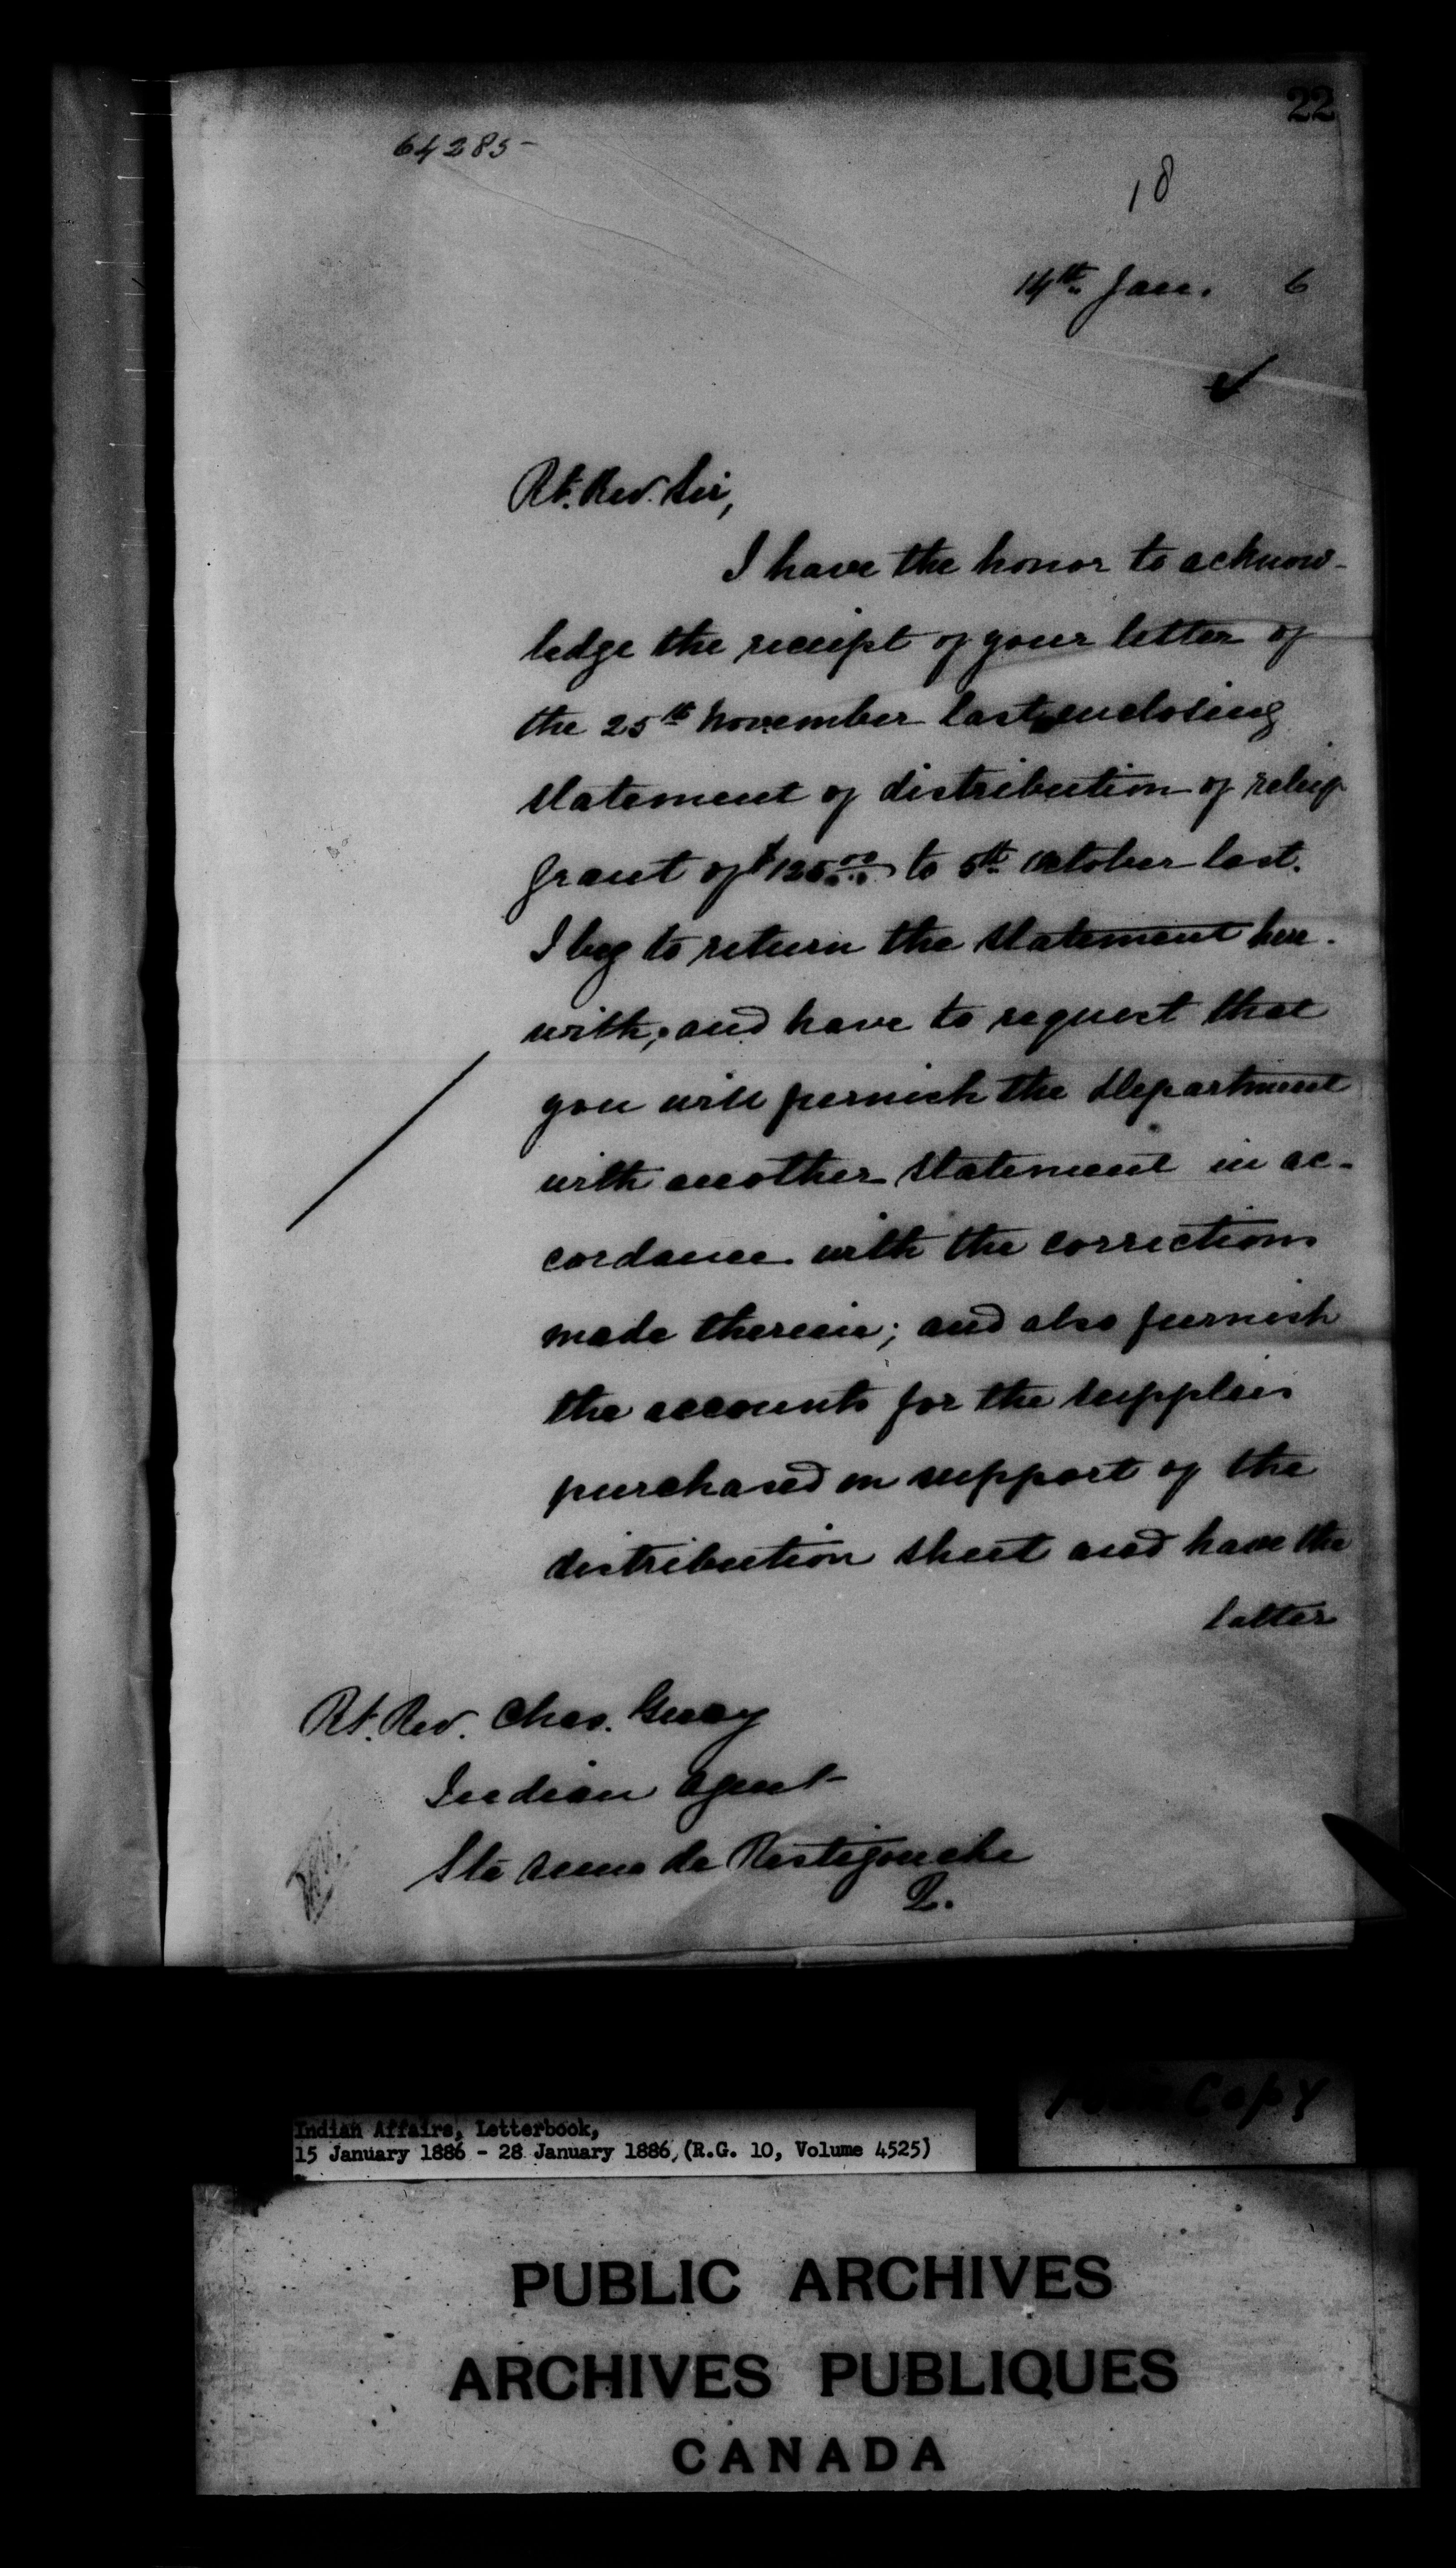 22
64285-
18
14th Jan. 6
Rt. Rev. Sir,
I have the honor to acknow-
ledge the receipt of your letter of
the 25th November last, enclosing
statement of distribution of relief
grant of $125.00 to 5th October last.
I beg to return the statement here-
with, and have to request that
you will furnish the Department
with another statement in ac-
cordance with the corrections
made therein; and also furnish
the accounts for the supplies
purchased in support of the
distribution sheet and have the
latter
Rt. Rev. Chas. Guay
Indian Agent
Ste Anne de Restigouche
Q.
Poor Copy
Indian Affairs, Letterbook,
15 January 1886 - 28 January 1886, (R.G. 10, Volume 4525)
PUBLIC ARCHIVES
ARCHIVES PUBLIQUES
CANADA